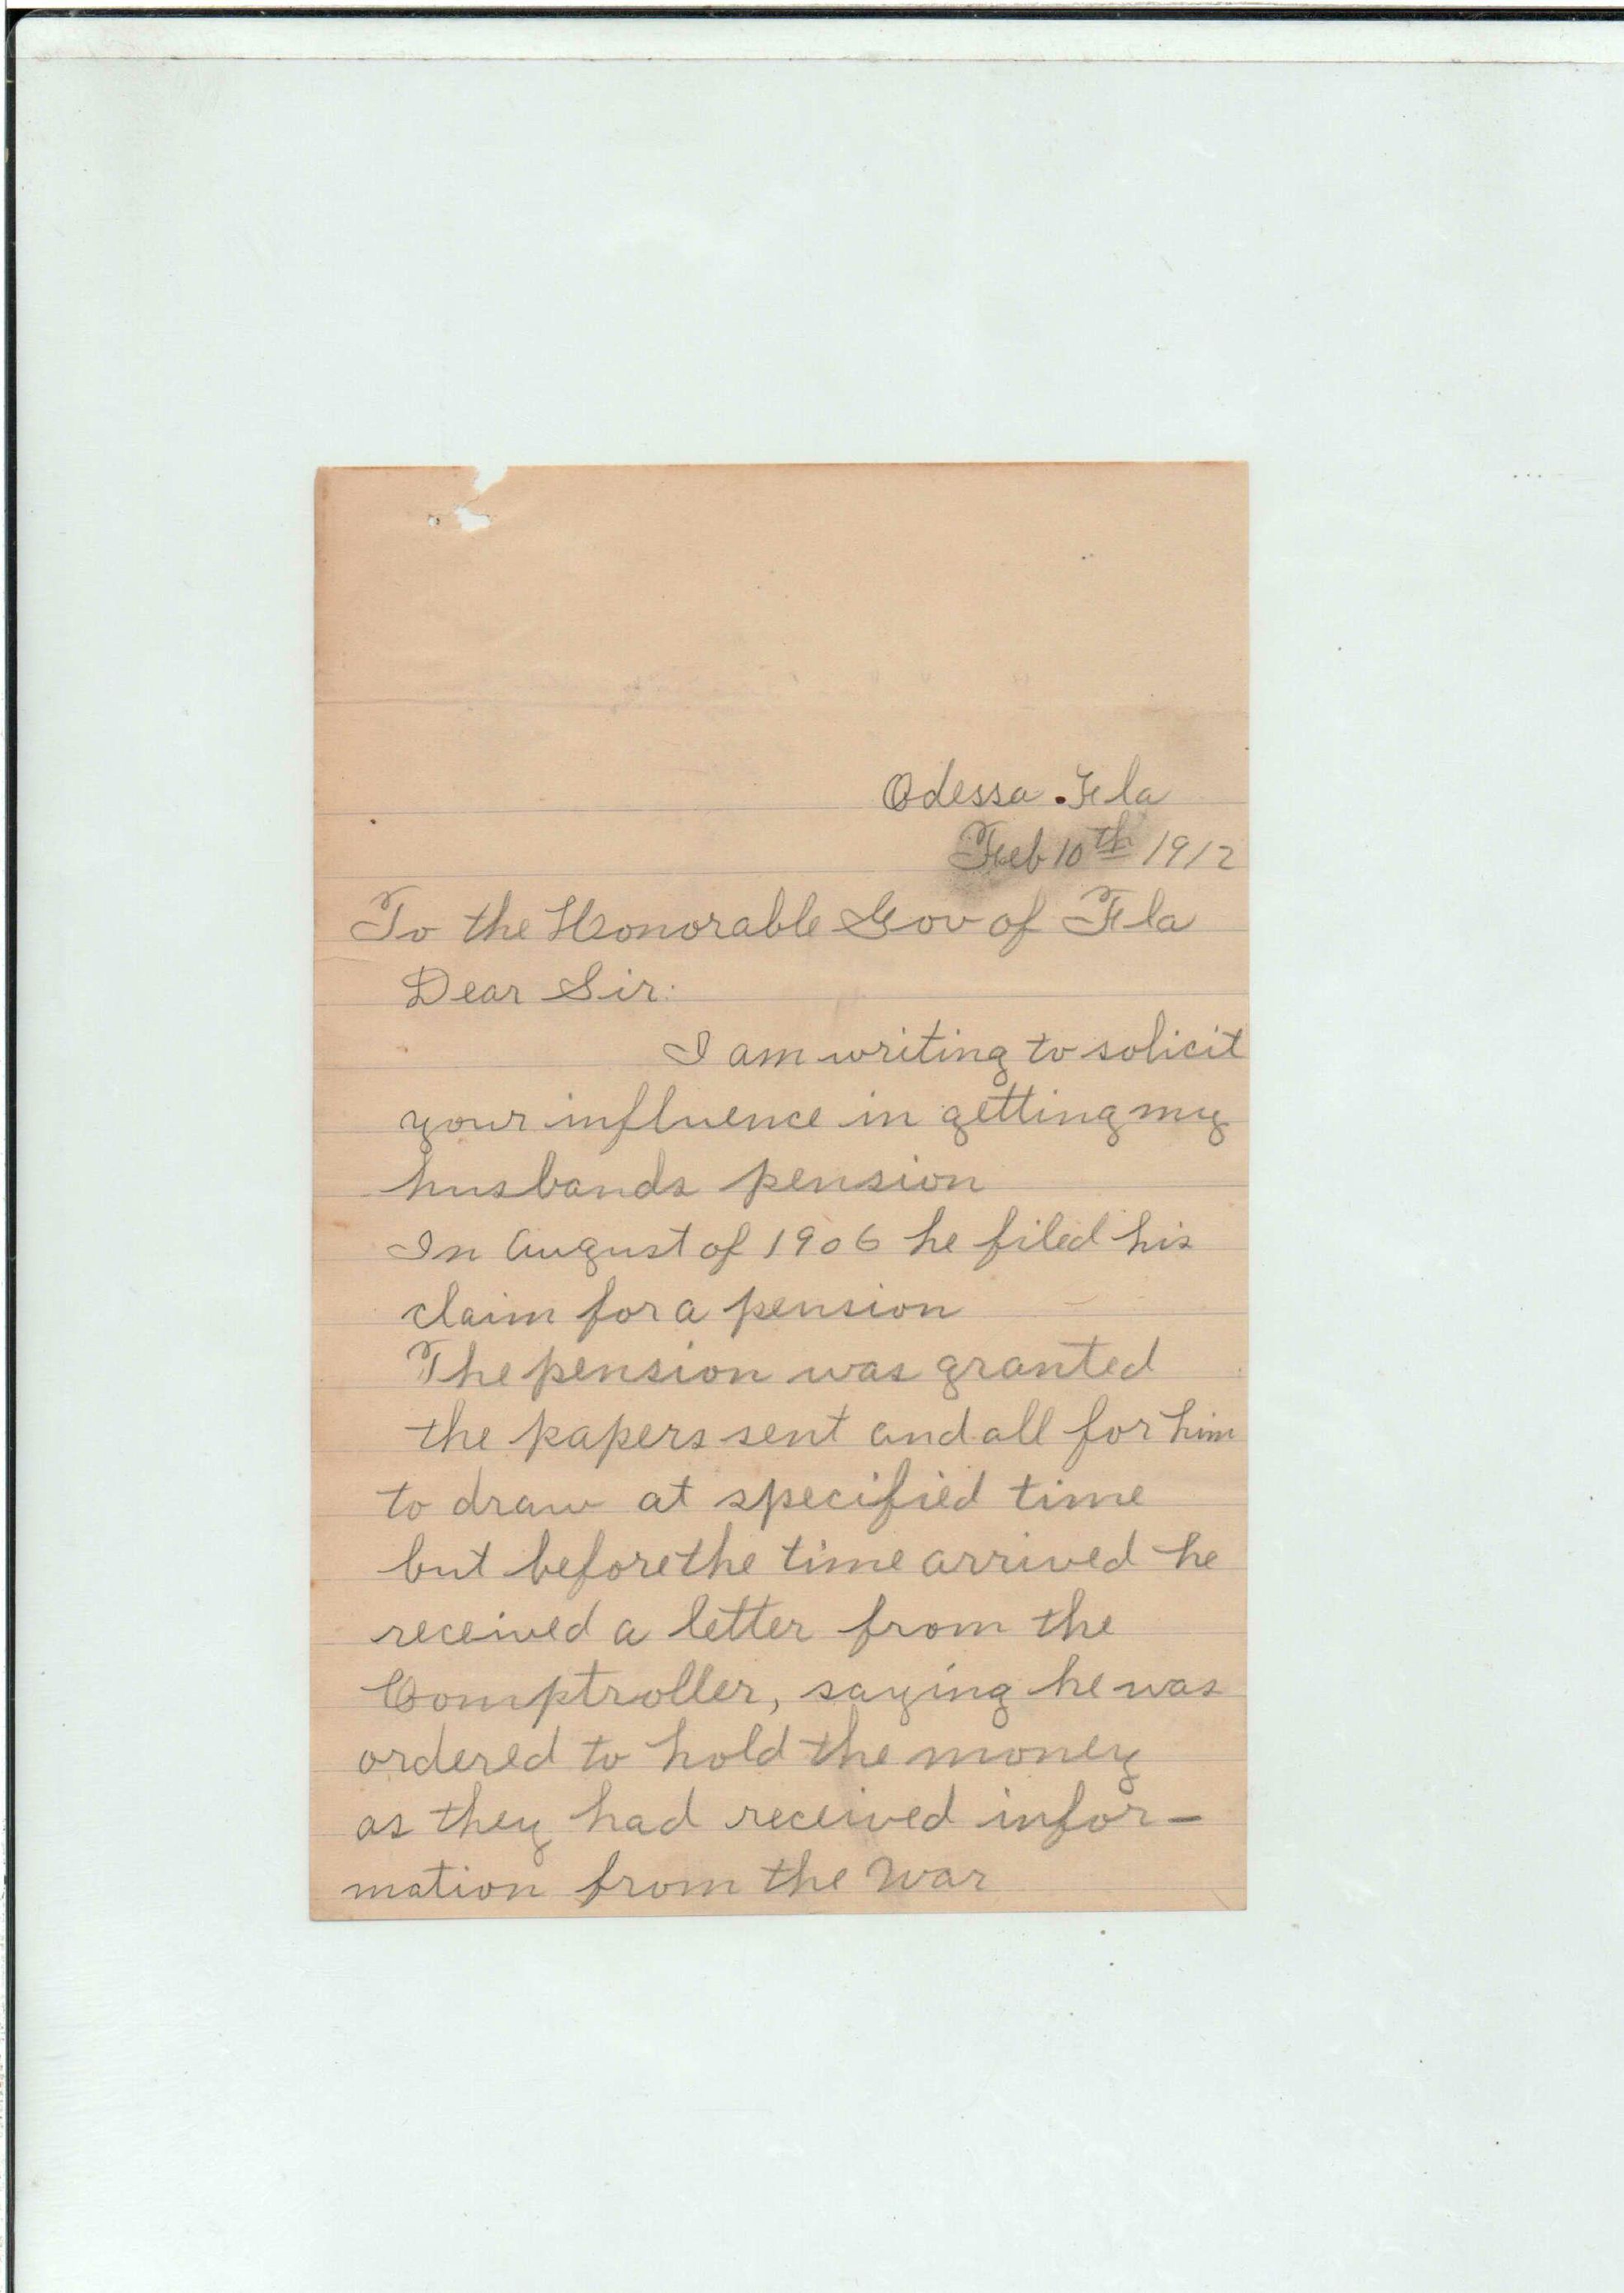 Odessa . Fla
Feb 10th 1912
To the Honorable Gov of Fla
Dear Sir:
I am writing to solicit
your influence in getting my
husbands pension
In August of 1906 he filed his
claim for a pension
The pension was granted
the papers sent and all for him
to draw at specified time
but before the time arrived he
received a letter from the
Comptroller, saying he was
ordered to hold the money
as they had received infor-
mation from the War